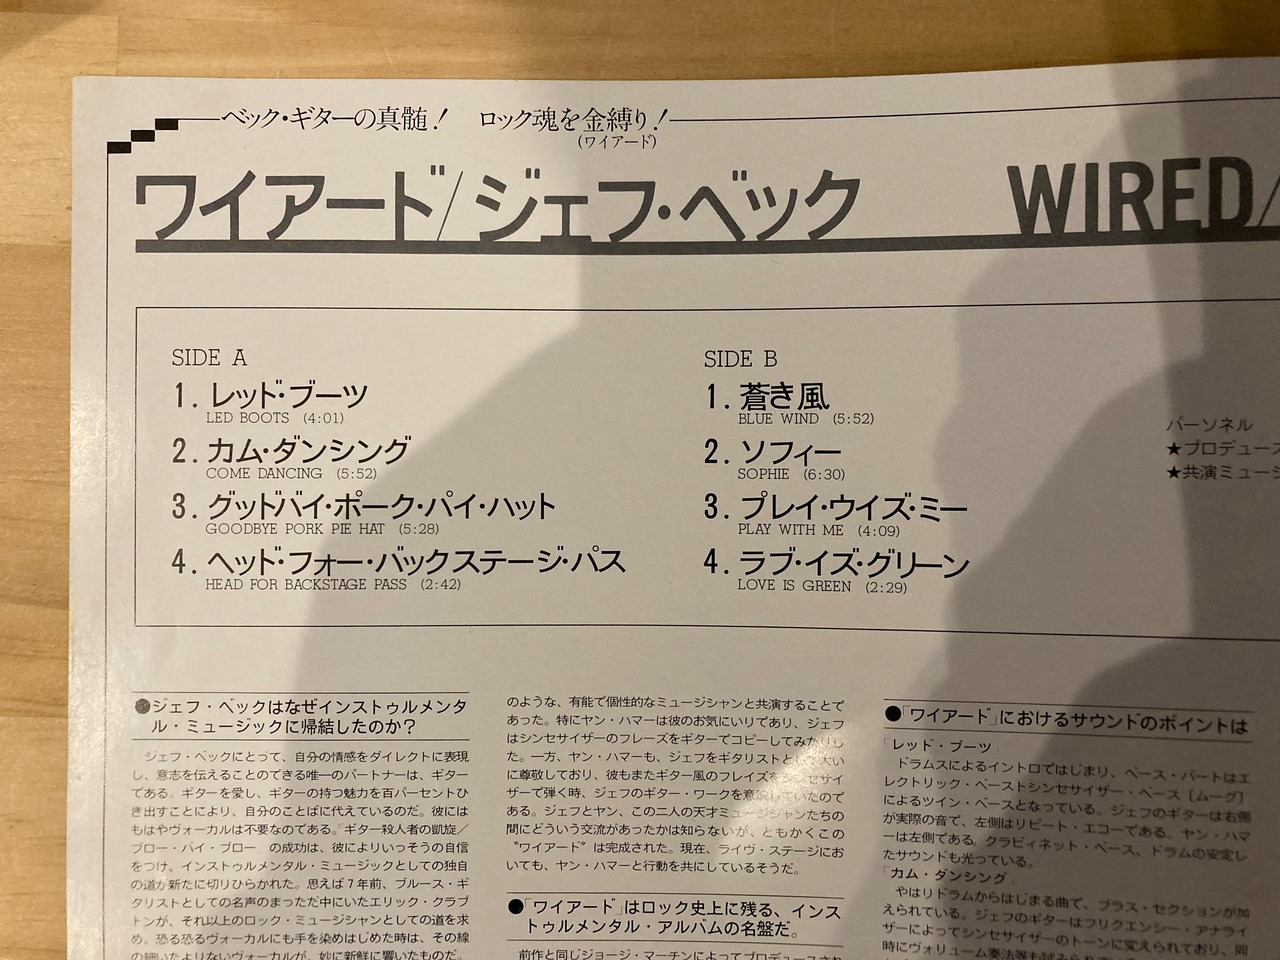 ベック・ギターの真髄! ロック魂を金縛り!
(ワイアード)
ワイアード/ジェフ・ベック WIRED/
SIDE A
1. レッド・ブーツ
LED BOOTS (4:01)
2. カム・ダンシング
COME DANCING (5:52)
3. グッドバイ・ポーク・パイ・ハット
GOODBYE PORK PIE HAT (5:28)
4. ヘッド・フォー・バックステージ・パス
HEAD FOR BACKSTAGE PASS (2:42)
SIDE B
1. 蒼き風
BLUE WIND (5:52)
2. ソフィー
SOPHIE (6:30)
3. プレイ・ウイズ・ミー
PLAY WITH ME (4:09)
4. ラブ・イズ・グリーン
LOVE IS GREEN (2:29)
パーソネル
★プロデュース
★共演ミュージ
●ジェフ・ベックはなぜインストゥルメンタ
ル・ミュージックに帰結したのか?
ジェフ・ベックにとって、自分の情感をダイレクトに表現
し、意志を伝えることのできる唯一のパートナーは、ギター
である。ギターを愛し、ギターの持つ魅力を百パーセントひ
き出すことにより、自分のことばに代えているのだ。彼には
もはやヴォーカルは不要なのである。「ギター殺人者の凱旋/
ブロー・バイ・ブロー」の成功は、彼によりいっそうの自信
をつけ、インストゥルメンタル・ミュージックとしての独自
の道が新たに切りひらかれた。思えば7年前、ブルース・ギ
タリストとしての名声のまっただ中にいたエリック・クラプ
トンが、それ以上のロック・ミュージシャンとしての道を求
め、恐る恐るヴォーカルにも手を染めはじめた時は、その線
の細いたよりないヴォーカルが、妙に新鮮に響いたものだ。
のような、有能で個性的なミュージシャンと共演することで
あった。特にヤン・ハマーは彼のお気にいりであり、ジェフ
はシンセサイザーのフレーズをギターでコピーしてみたりし
た。一方、ヤン・ハマーも、ジェフをギタリストとして大い
に尊敬しており、彼もまたギター風のフレイズをシンセサイ
ザーで弾く時、ジェフのギター・ワークを意識していたので
ある。ジェフとヤン、この二人の天才ミュージシャンたちの
間にどういう交流があったかは知らないが、ともかくこの
"ワイアード"は完成された。現在、ライヴ・ステージにお
いても、ヤン・ハマーと行動を共にしているそうだ。
●「ワイアード」はロック史上に残る、インス
トゥルメンタル・アルバムの名盤だ。
前作と同じジョージ・マーチンによってプロデュースされ
●「ワイアード」におけるサウンドのポイントは
「レッド・ブーツ」
ドラムスによるイントロではじまり、ベース・パートはエ
レクトリック・ベースとシンセサイザー・ベース［ムーグ］
によるツイン・ベースとなっている。ジェフのギターは右側
が実際の音で、左側はリピート・エコーである。ヤン・ハマ
ーは左側である。クラビィネット・ベース、ドラムの安定し
たサウンドも光っている。
「カム・ダンシング」
やはりドラムからはじまる曲で、ブラス・セクションが加
えられている。ジェフのギターはフリクエンシー・アナライ
ザーによってシンセサイザーのトーンに変えられており、同
時にヴォリューム奏法等も試みられている